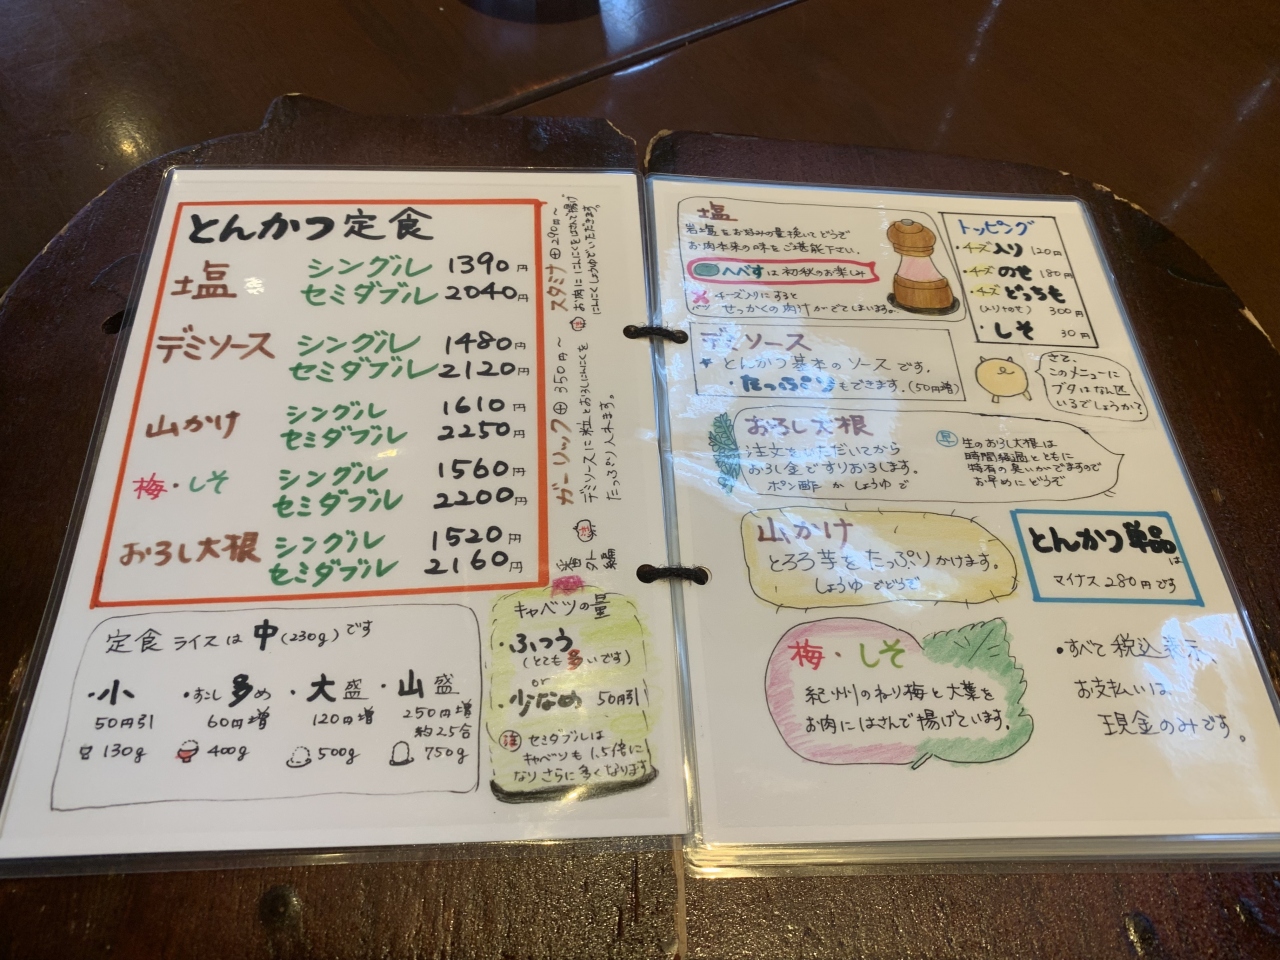 とんかつ定食
塩 シングル 1390円
セミダブル 2040円
デミソース シングル 1480円
セミダブル 2120円
山かけ シングル 1610円
セミダブル 2250円
梅・しそ シングル 1560円
セミダブル 2200円
おろし大根 シングル 1520円
セミダブル 2160円
スタミナ⊕290円〜
お肉ににんにくをはさんで揚げ
にんにくしょうゆでいただきます。
ガーリック⊕350円〜
デミソースに粒とおろしにんにくを
たっぷり入れます。
番外編
定食ライスは中(230g)です
・小 ・すこし多め ・大盛 ・山盛
50円引 60円増 120円増 250円増
約2.5合
130g 400g 500g 750g
キャベツの量
・ふつう
(とても多いです)
or
・少なめ 50円引
注 セミダブルは
キャベツも1.5倍に
なりさらに多くなります
塩
岩塩をお好みの量挽いてどうぞ
お肉本来の味をご堪能下さい。
へべすは初秋のお楽しみ
チーズ入りにすると
せっかくの肉汁がでてしまいます。
トッピング
・チーズ入り 120円
・チーズのせ 180円
・チーズどっちも
(入りとのせ) 300円
・しそ 30円
デミソース
とんかつ基本のソースです。
・たっぷりもできます。(50円増)
さて、
このメニューに
ブタはなん匹
いるでしょうか?
おろし大根
注文をいただいてから
おろし金ですりおろします。
ポン酢かしょうゆで
早 生のおろし大根は
時間経過とともに
特有の臭いがでますので
お早めにどうぞ
山かけ
とろろ芋をたっぷりかけます。
しょうゆでどうぞ
とんかつ単品は
マイナス280円です
梅・しそ
紀州のねり梅と大葉を
お肉にはさんで揚げています。
・すべて税込表示、
お支払いは
現金のみです。